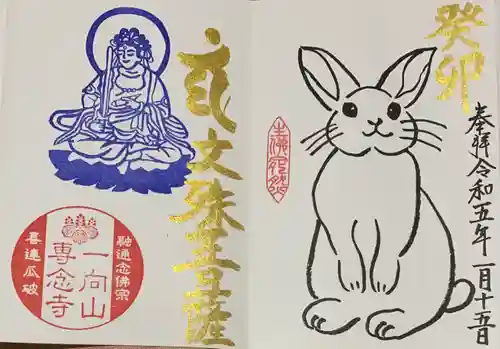 癸卯
奉拝 令和五年 一月十五日
文殊菩薩
融通念佛宗
一向山
専念寺
喜連瓜破